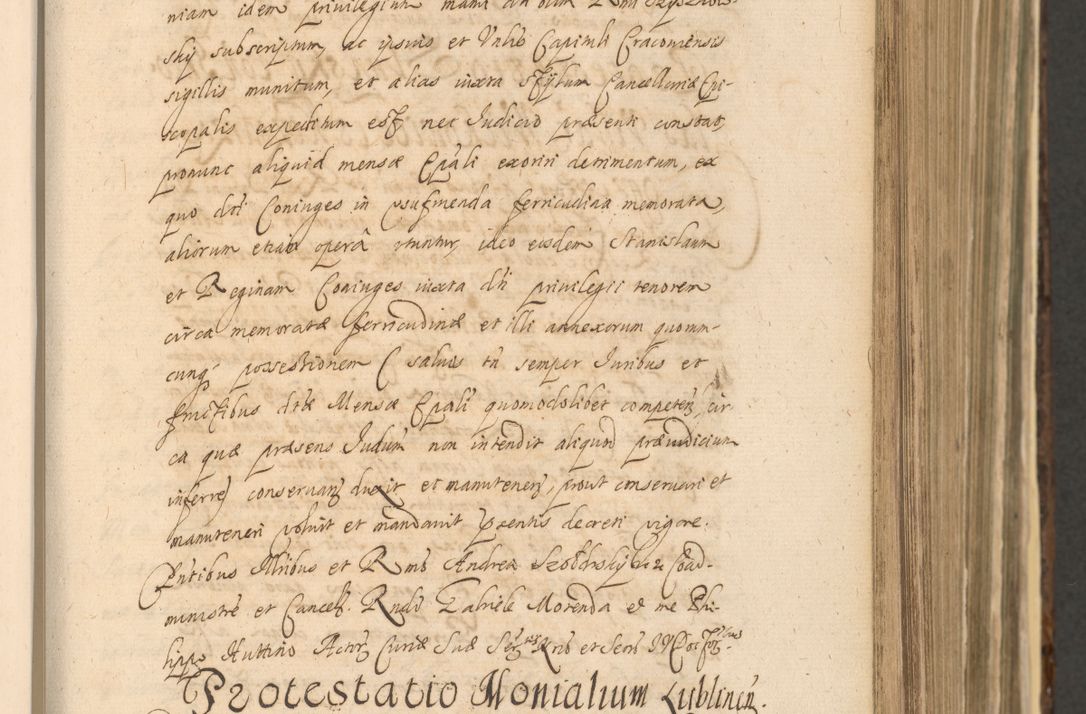 niam idem privilegium manu
skij subscriptum, ac ipsius et Vnlis Capituli Cracouiensis
sigillis munitum, et alias iuxta stylum Cancellariæ Epi-
scopalis expeditum est, nec Iudicio præsenti constat,
pronunc aliquid mensæ Epali exoriri detrimentum, ex
quo dti Coniuges in memorata,
aliorum etiam operâ vtuntur, ideo eosdem Stanislaum
et Reginam Coniuges iuxta dti privilegii tenorem
circa memoratæ ferricudinæ et illi annexorum quorum-
cunq possessionem ( saluis tn semper Iuribus et
fructibus dtæ Mensæ Epali quomodolibet competen, cir
ca quæ præsens Iudium non intendit aliquod præiudicium
inferre) conservan duxit et manutenen, prout conservari et
manuteneri voluit et mandauit præntis decreti vigore.
Pntibus Illribus et Rmo Andrea Coad-
ministre et Cancel. Rndo Gabriele Morenda et me Phi-
lippo Huttino Actor Curiæ Suæ
Protestatio Monialium Lublinen.